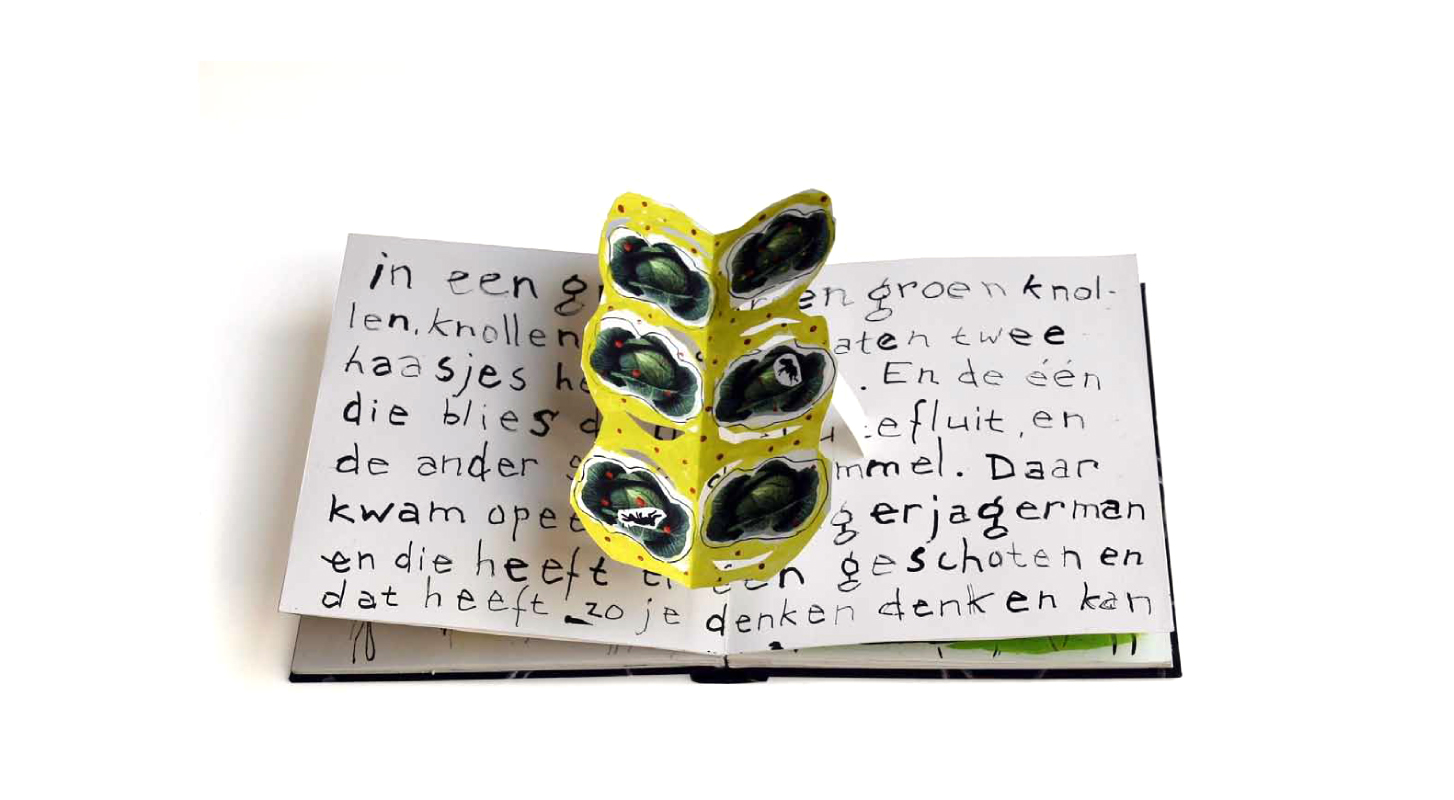 in een g en groen knol-
len, knollen aten twee
haasjes h . En de één
die blies d efluit, en
de ander g mmel. Daar
kwam opee gerjagerman
en die heeft er een geschoten en
dat heeft zo je denken denken kan